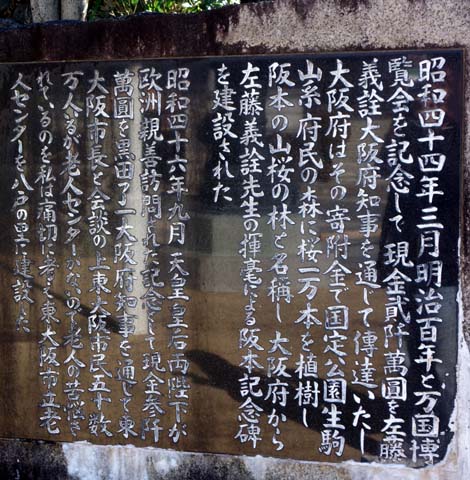 昭和四十四年三月明治百年と万国博
覧会を記念して現金貮阡萬圓を左藤
義詮大阪府知事を通じて傳達いたし
大阪府はその寄附金で国定公園生駒
山系府民の森に桜一万本を植樹し
阪本の山桜の林と名稱し大阪府から
左藤義詮先生の揮毫による阪本記念碑
を建設された
昭和四十六年九月天皇皇后両陛下が
欧洲親善訪問された記念として現金参阡
萬圓を黒田了一大阪府知事を通じて東
大阪市長と会談の上東大阪市民五十数
万人るが老人センターがないので老人の苦悩さ
れているのを私は痛切に考えて東大阪市立老
人センターを八戸の里へ建設した